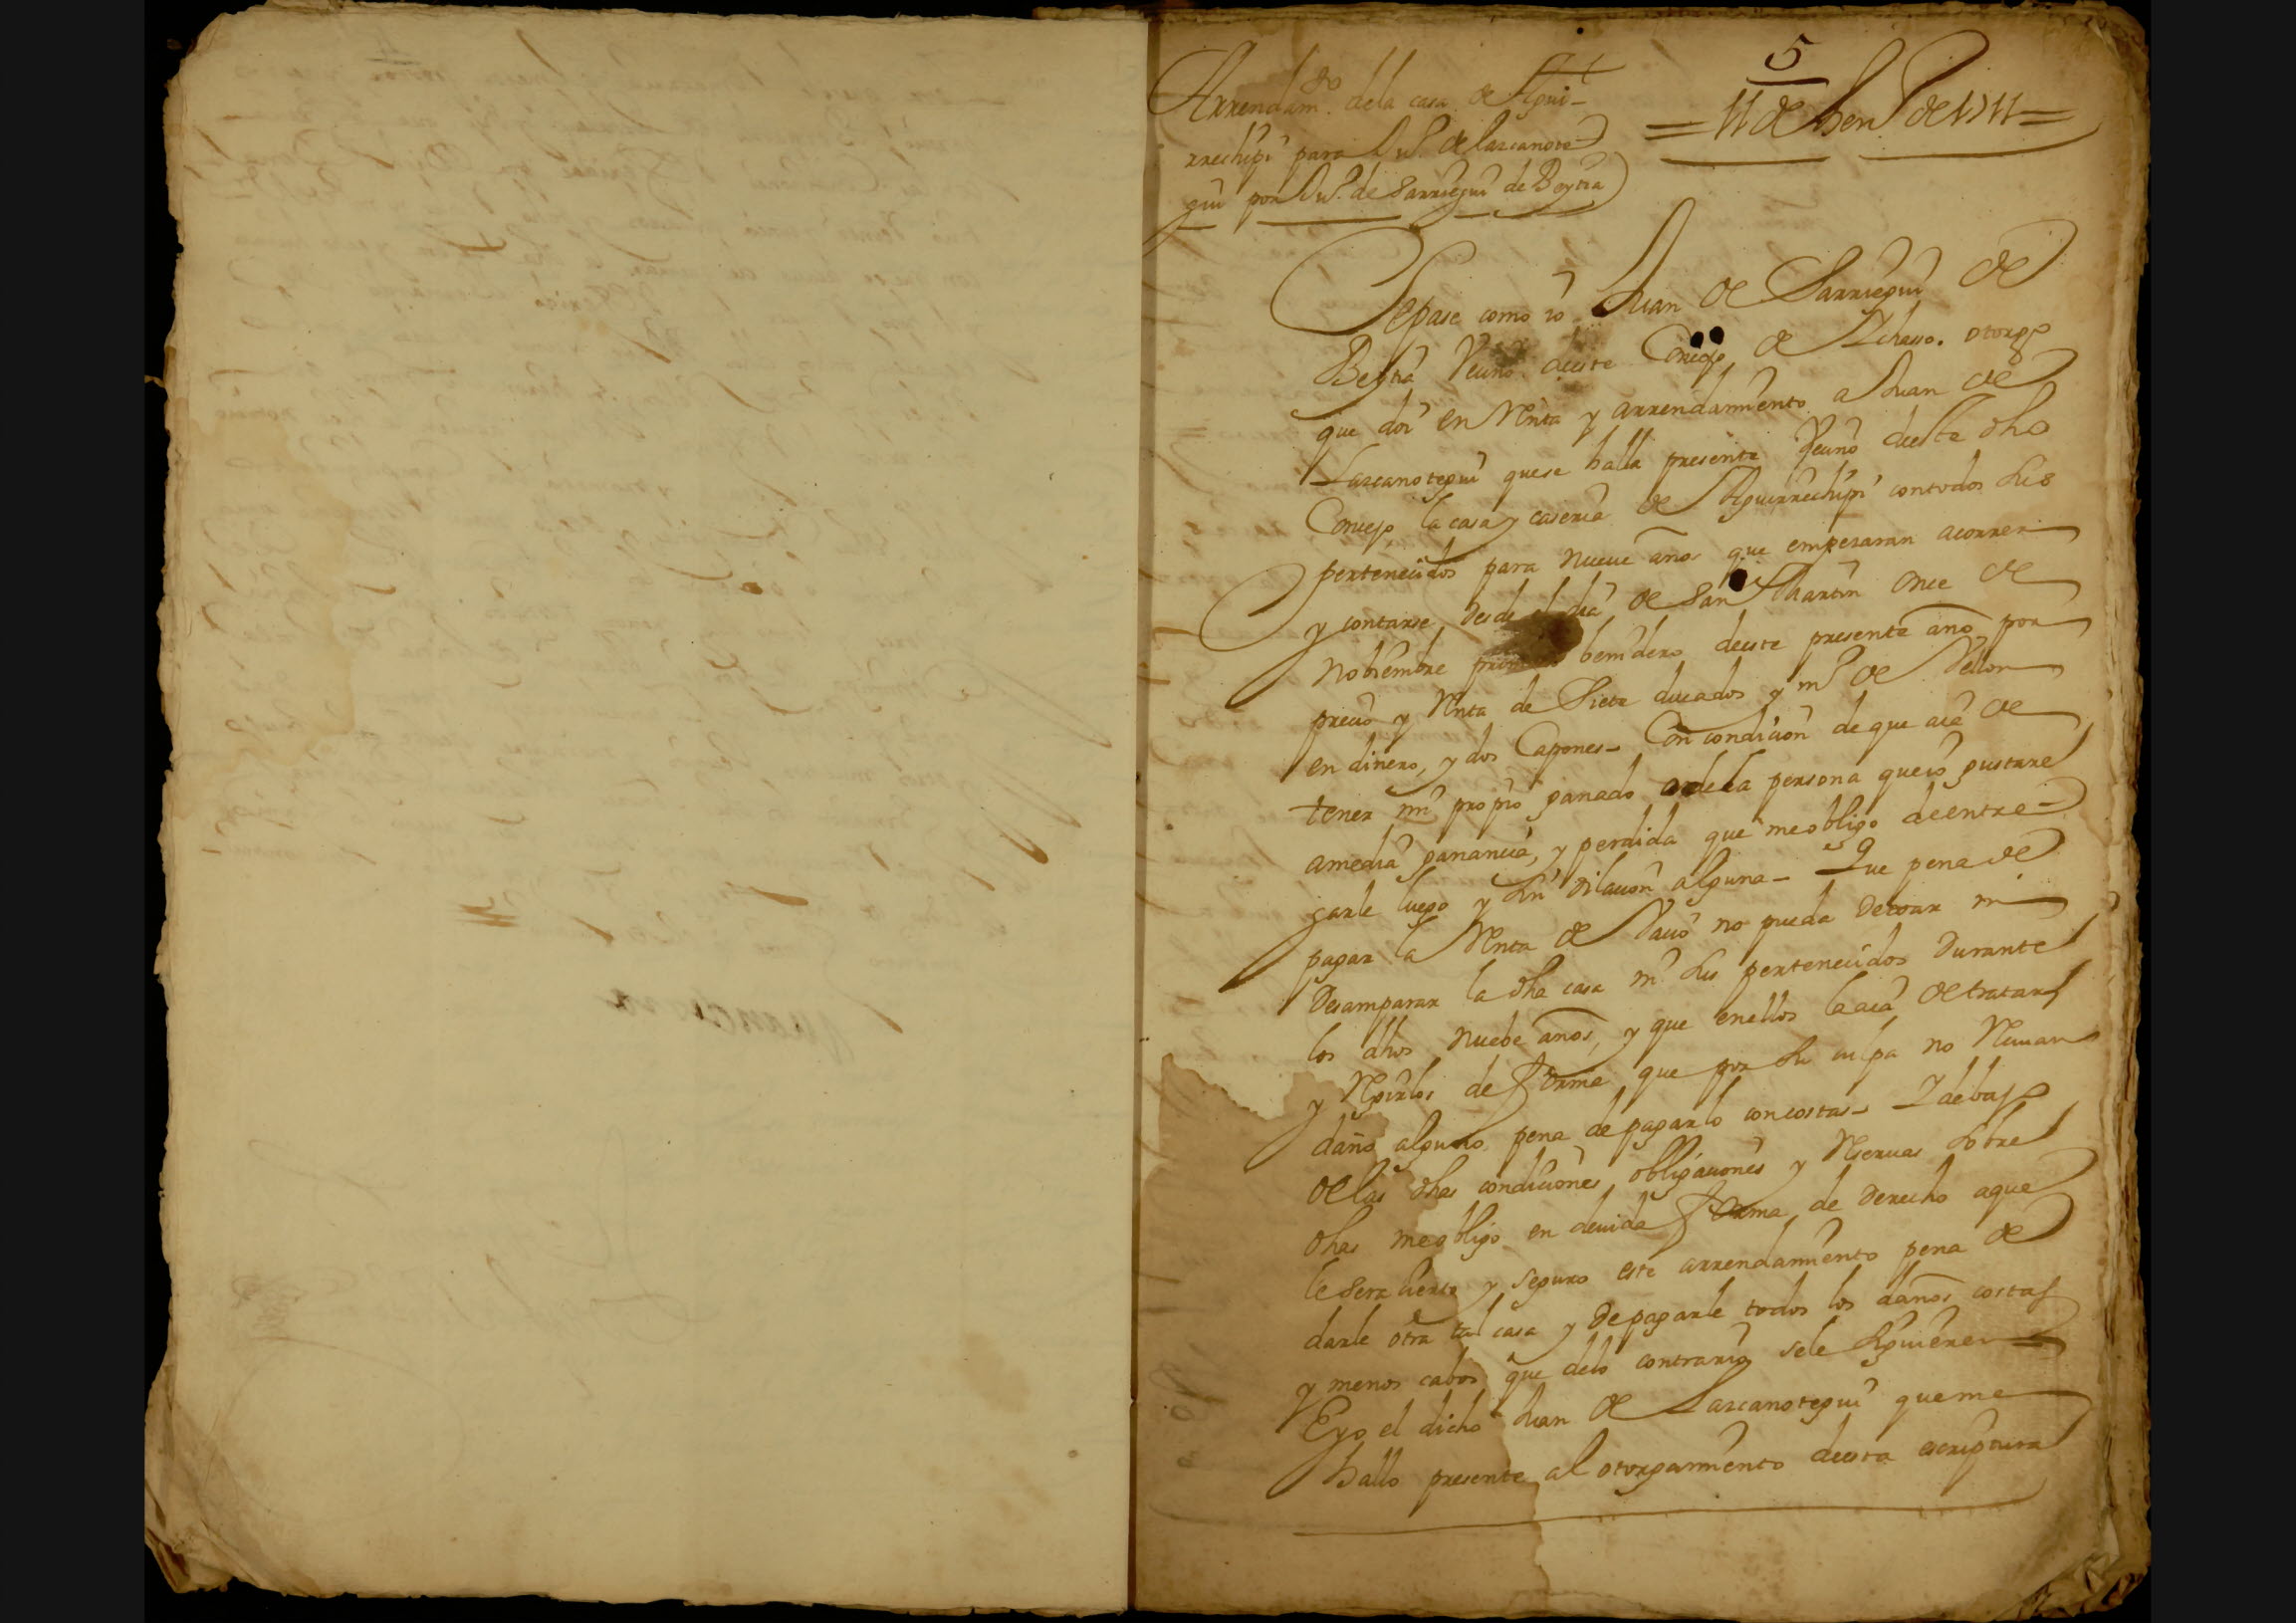 5
= 11 de hen.º de 1711 =
Arrendam.to dela casa de Agui-
rrechipi para Ju.º de Lazcanote-
gui por Ju.º de Sarriegui de Beytia
Sepase como io Juan de Sarriegui de
Beytia Vecino deeste Concejo de Ichasso. otorgo
que doi en Renta y arrendamiento a Juan de
Lazcanotegui quese halla presente Vecino deeste dho
Concejo, la casa y caseria de Aguirrechipi contodos sus
pertenecidos para nueve años que empezaran acorrer
y contarse desde el dia de San Martin once de
nobiembre primero benidero deeste presente año, por
precio y Renta de Siete ducados y m.º de Vellon
en dinero, y dos Capones - Con condicion de que aia de
tener mi propio ganado odela persona queio gustare
amedia ganancia, y perdida que meobligo deentre-
garle luego y sin dilacion alguna - Que pena de
pagar la Renta de Vacio no pueda dexar ni
desamparar la dha casa ni sus pertenecidos durante
los dhos nuebe años, y que enellos laaia de tratar
y Rejirlos de forma que por su culpa no Reciuan
daño alguno pena de pagarlo concostas - Y debajo
de las dhas condiciones, obligaciones y Reseruas sobre
dhas meobligo en deuida forma de derecho aque
le sera cierto y seguro este arrendamiento pena de
darle otra tal casa y de pagarle todos los daños costas
y menos cabos que delo contrario sele siguieren =
E yo el dicho Juan de Lazcanotegui queme
hallo presente al otorgamiento deesta escriptura